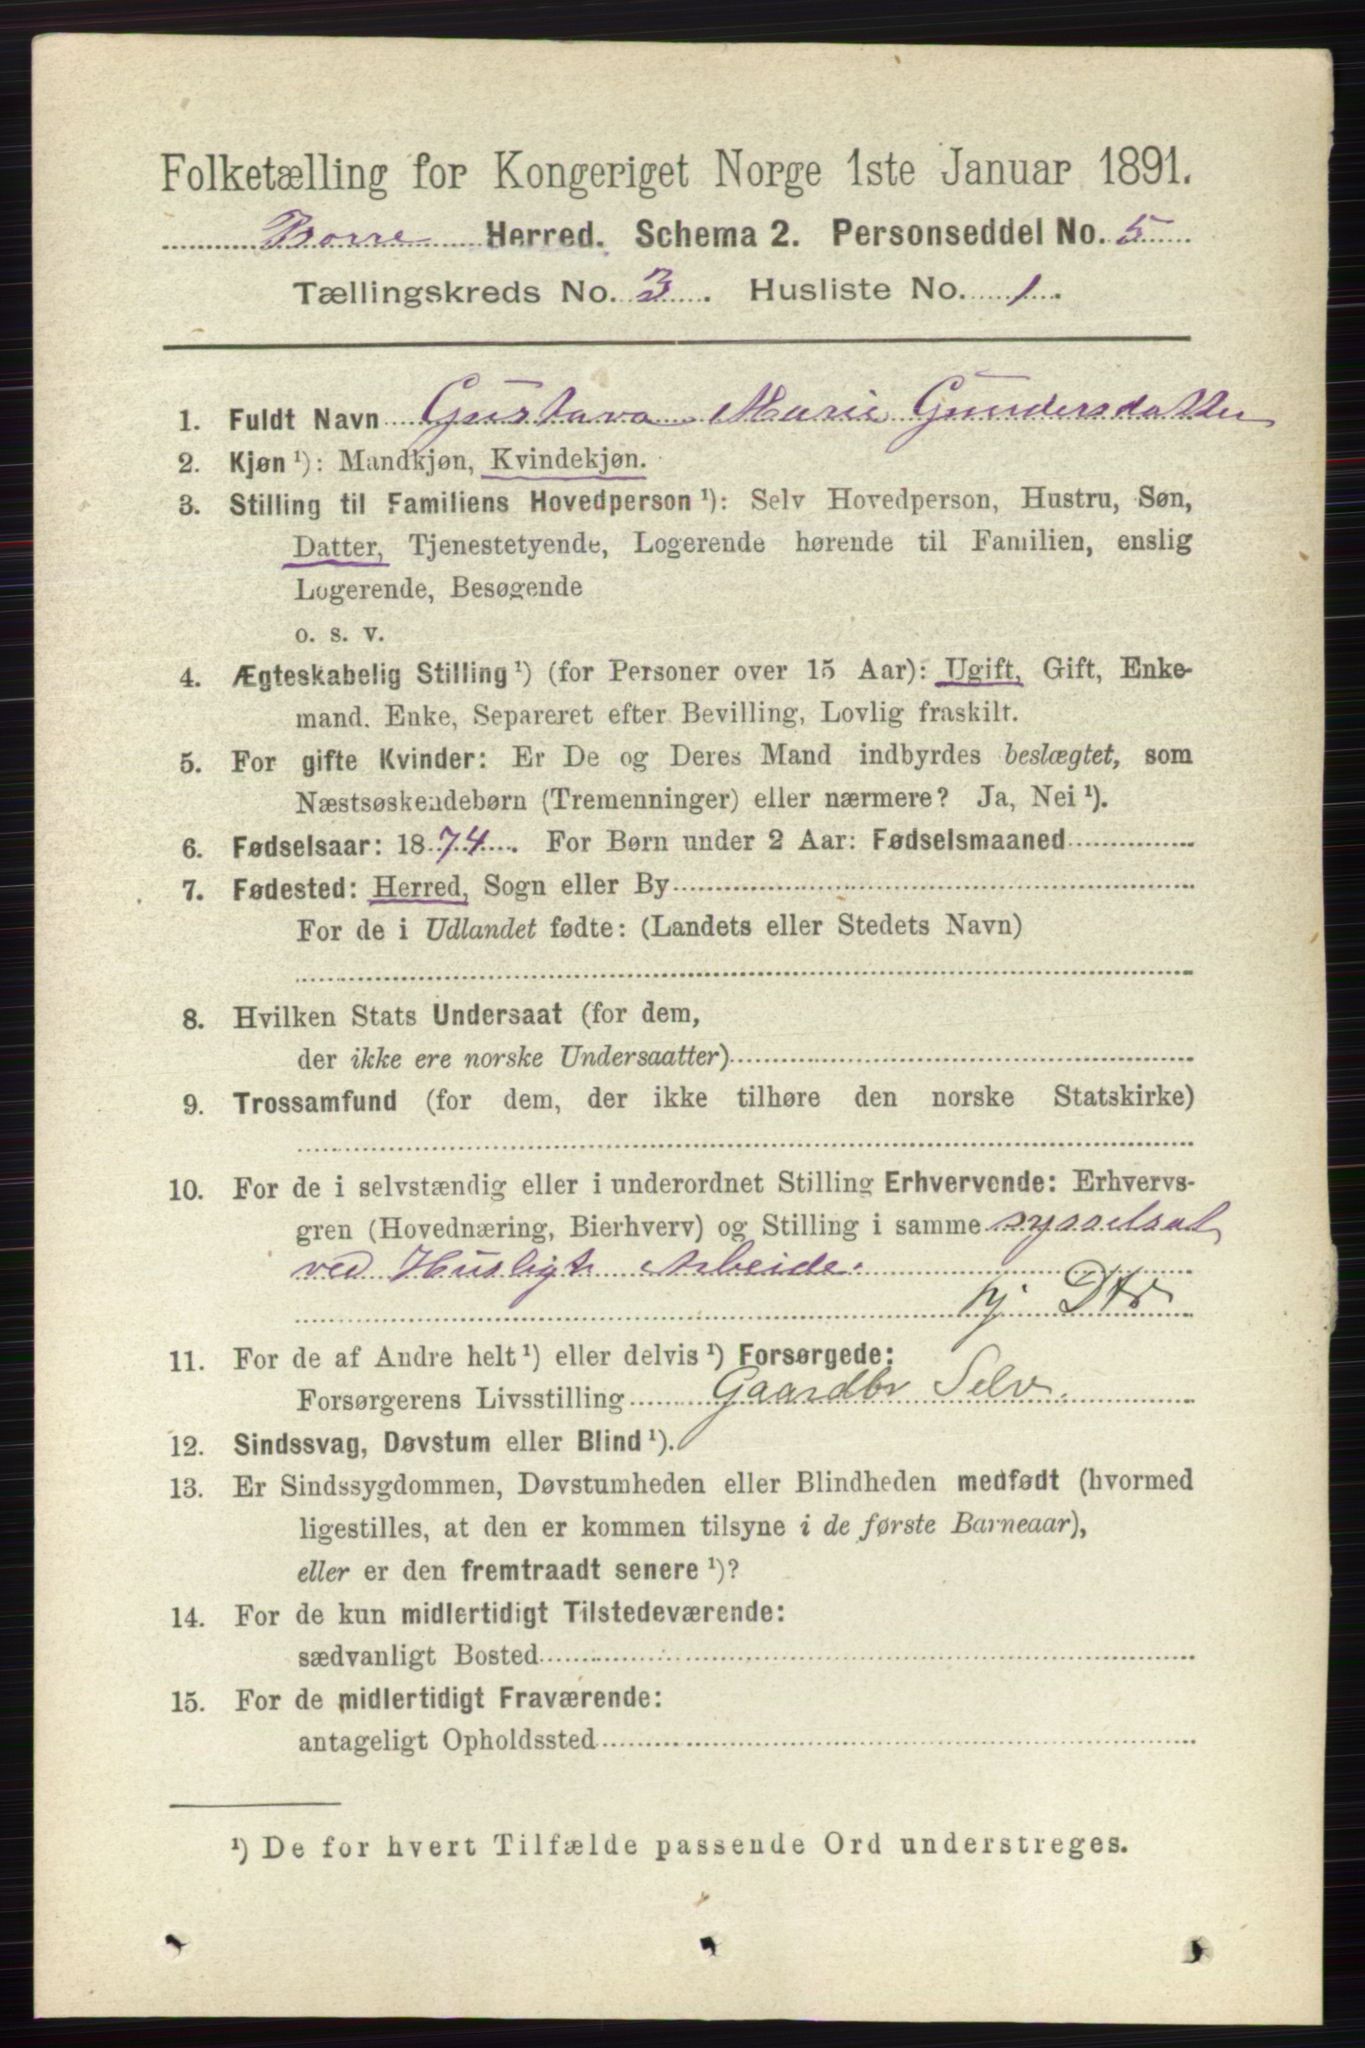 Folketælling for Kongeriget Norge 1ste Januar 1891.
Borre Herred. Schema 2. Personseddel No. 5
Tællingskreds No. 3. Husliste No. 1.
1. Fuldt Navn Gustava Marie Gundersdatter
2. Kjøn ¹): Mandkjøn, Kvindekjøn.
3. Stilling til Familiens Hovedperson ¹): Selv Hovedperson, Hustru, Søn,
Datter, Tjenestetyende, Logerende hørende til Familien, enslig
Logerende, Besøgende
o. s. v.
4. Ægteskabelig Stilling ¹) (for Personer over 15 Aar): Ugift, Gift, Enke-
mand. Enke, Separeret efter Bevilling, Lovlig fraskilt.
5. For gifte Kvinder: Er De og Deres Mand indbyrdes beslægtet, som
Næstsøskendebørn (Tremenninger) eller nærmere? Ja, Nei ¹).
6. Fødselsaar: 1874. For Børn under 2 Aar: Fødselsmaaned
7. Fødested: Herred, Sogn eller By
For de i Udlandet fødte: (Landets eller Stedets Navn)
8. Hvilken Stats Undersaat (for dem,
der ikke ere norske Undersaatter)
9. Trossamfund (for dem, der ikke tilhøre den norske Statskirke)
10. For de i selvstændig eller i underordnet Stilling Erhvervende: Erhvervs-
gren (Hovednæring, Bierhverv) og Stilling i samme sysselsat
ved Husligt Arbeide.
hj Dtr
11. For de af Andre helt ¹) eller delvis ¹) Forsørgede:
Forsørgerens Livsstilling Gaardbr Selv.
12. Sindssvag, Døvstum eller Blind ¹).
13. Er Sindssygdommen, Døvstumheden eller Blindheden medfødt (hvormed
ligestilles, at den er kommen tilsyne i de første Barneaar),
eller er den fremtraadt senere ¹)?
14. For de kun midlertidigt Tilstedeværende:
sædvanligt Bosted
15. For de midlertidigt Fraværende:
antageligt Opholdssted
¹) De for hvert Tilfælde passende Ord understreges.